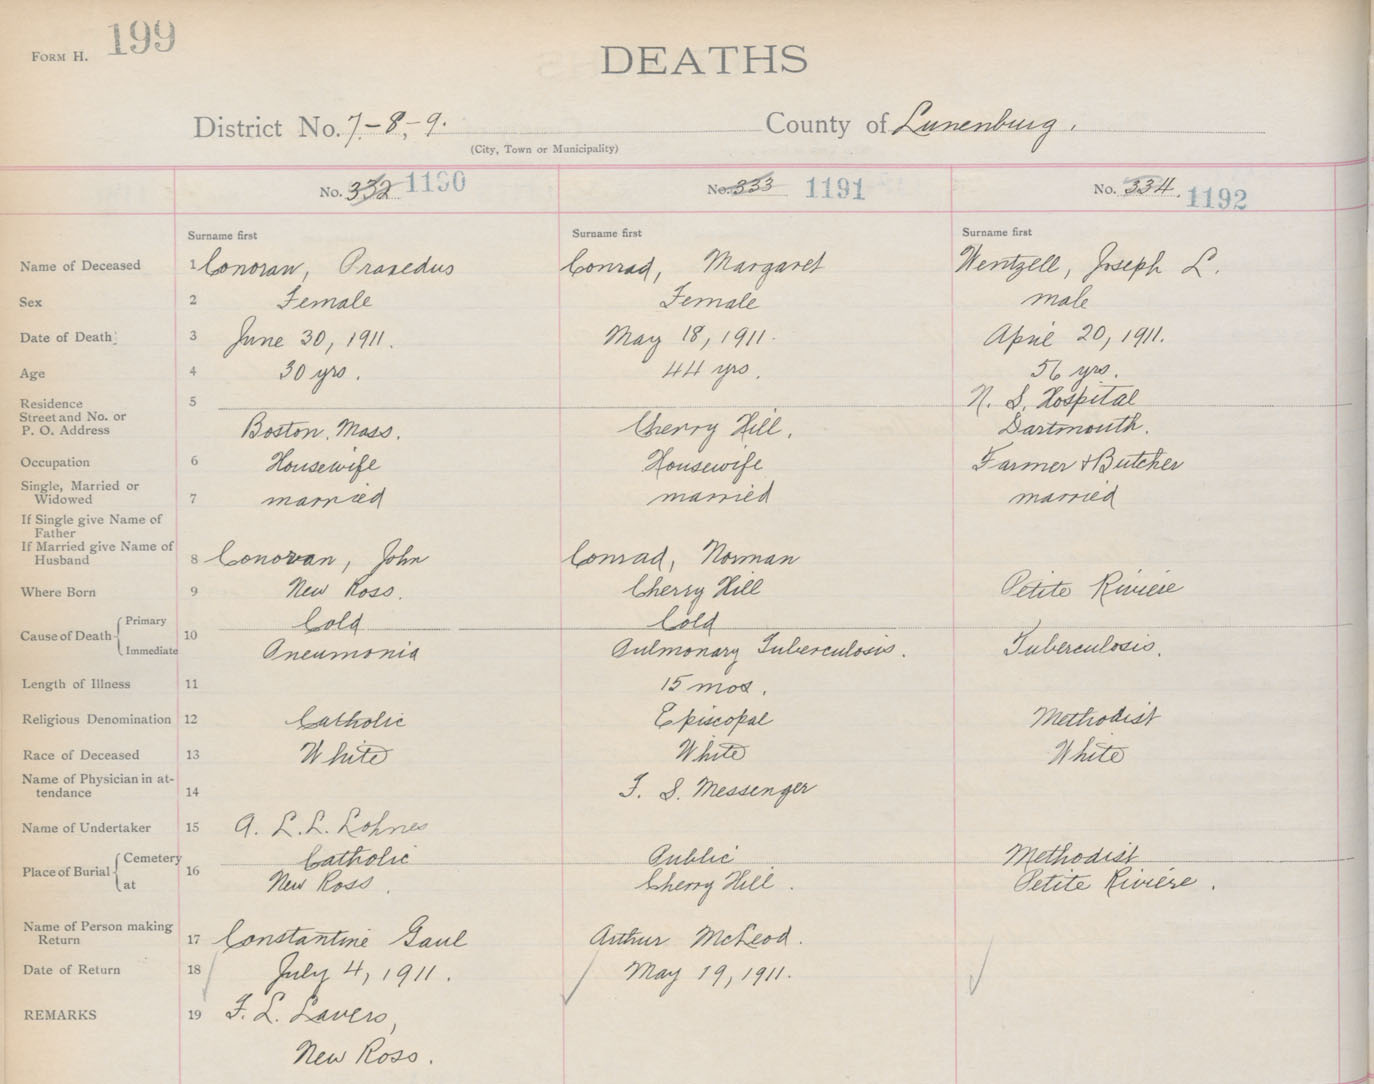 FORM H. 199
DEATHS
District No. 7-8,-9. County of Lunenburg.
(City, Town or Municipality)
No. 332 1190 No. 333 1191 No. 334. 1192
Surname first Surname first Surname first
Name of Deceased 1 Conovan, Praxedus Conrad, Margaret Wentzell, Joseph L.
Sex 2 Female Female male
Date of Death 3 June 30, 1911. May 18, 1911. April 20, 1911.
Age 4 30 yrs. 44 yrs. 56 yrs.
Residence 5 N. S. Hospital
Street and No. or
P. O. Address Boston, Mass. Cherry Hill. Dartmouth.
Occupation 6 Housewife Housewife Farmer + Butcher
Single, Married or
Widowed 7 married married married
If Single give Name of
Father
If Married give Name of
Husband 8 Conovan, John Conrad, Norman
Where Born 9 New Ross. Cherry Hill Petite Riviére
Cause of Death 10 Primary Cold Cold
Immediate Pneumonia Pulmonary Tuberculosis. Tuberculosis.
Length of Illness 11 15 mos.
Religious Denomination 12 Catholic Episcopal Methodist
Race of Deceased 13 White White White
Name of Physician in at-
tendance 14 F. S. Messenger
Name of Undertaker 15 A. L. L. Lohnes
Place of Burial 16 Cemetery Catholic Public Methodist
at New Ross. Cherry Hill. Petite Riviére.
Name of Person making
Return 17 Constantine Gaul Arthur McLeod.
Date of Return 18 July 4, 1911. May 19, 1911.
REMARKS 19 F. L. Lavers,
New Ross.